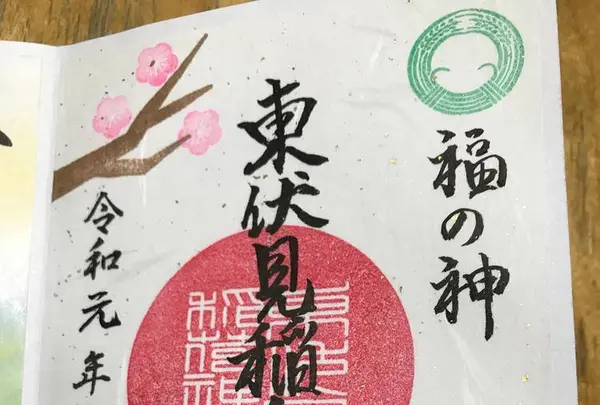 福の神
東伏見稲
令和元年